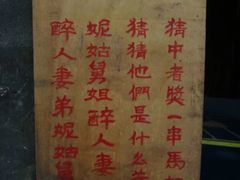 猜中者獎一串馬
猜猜他們是什么
妮姑舅姐醉人妻
醉人妻弟妮姑舅